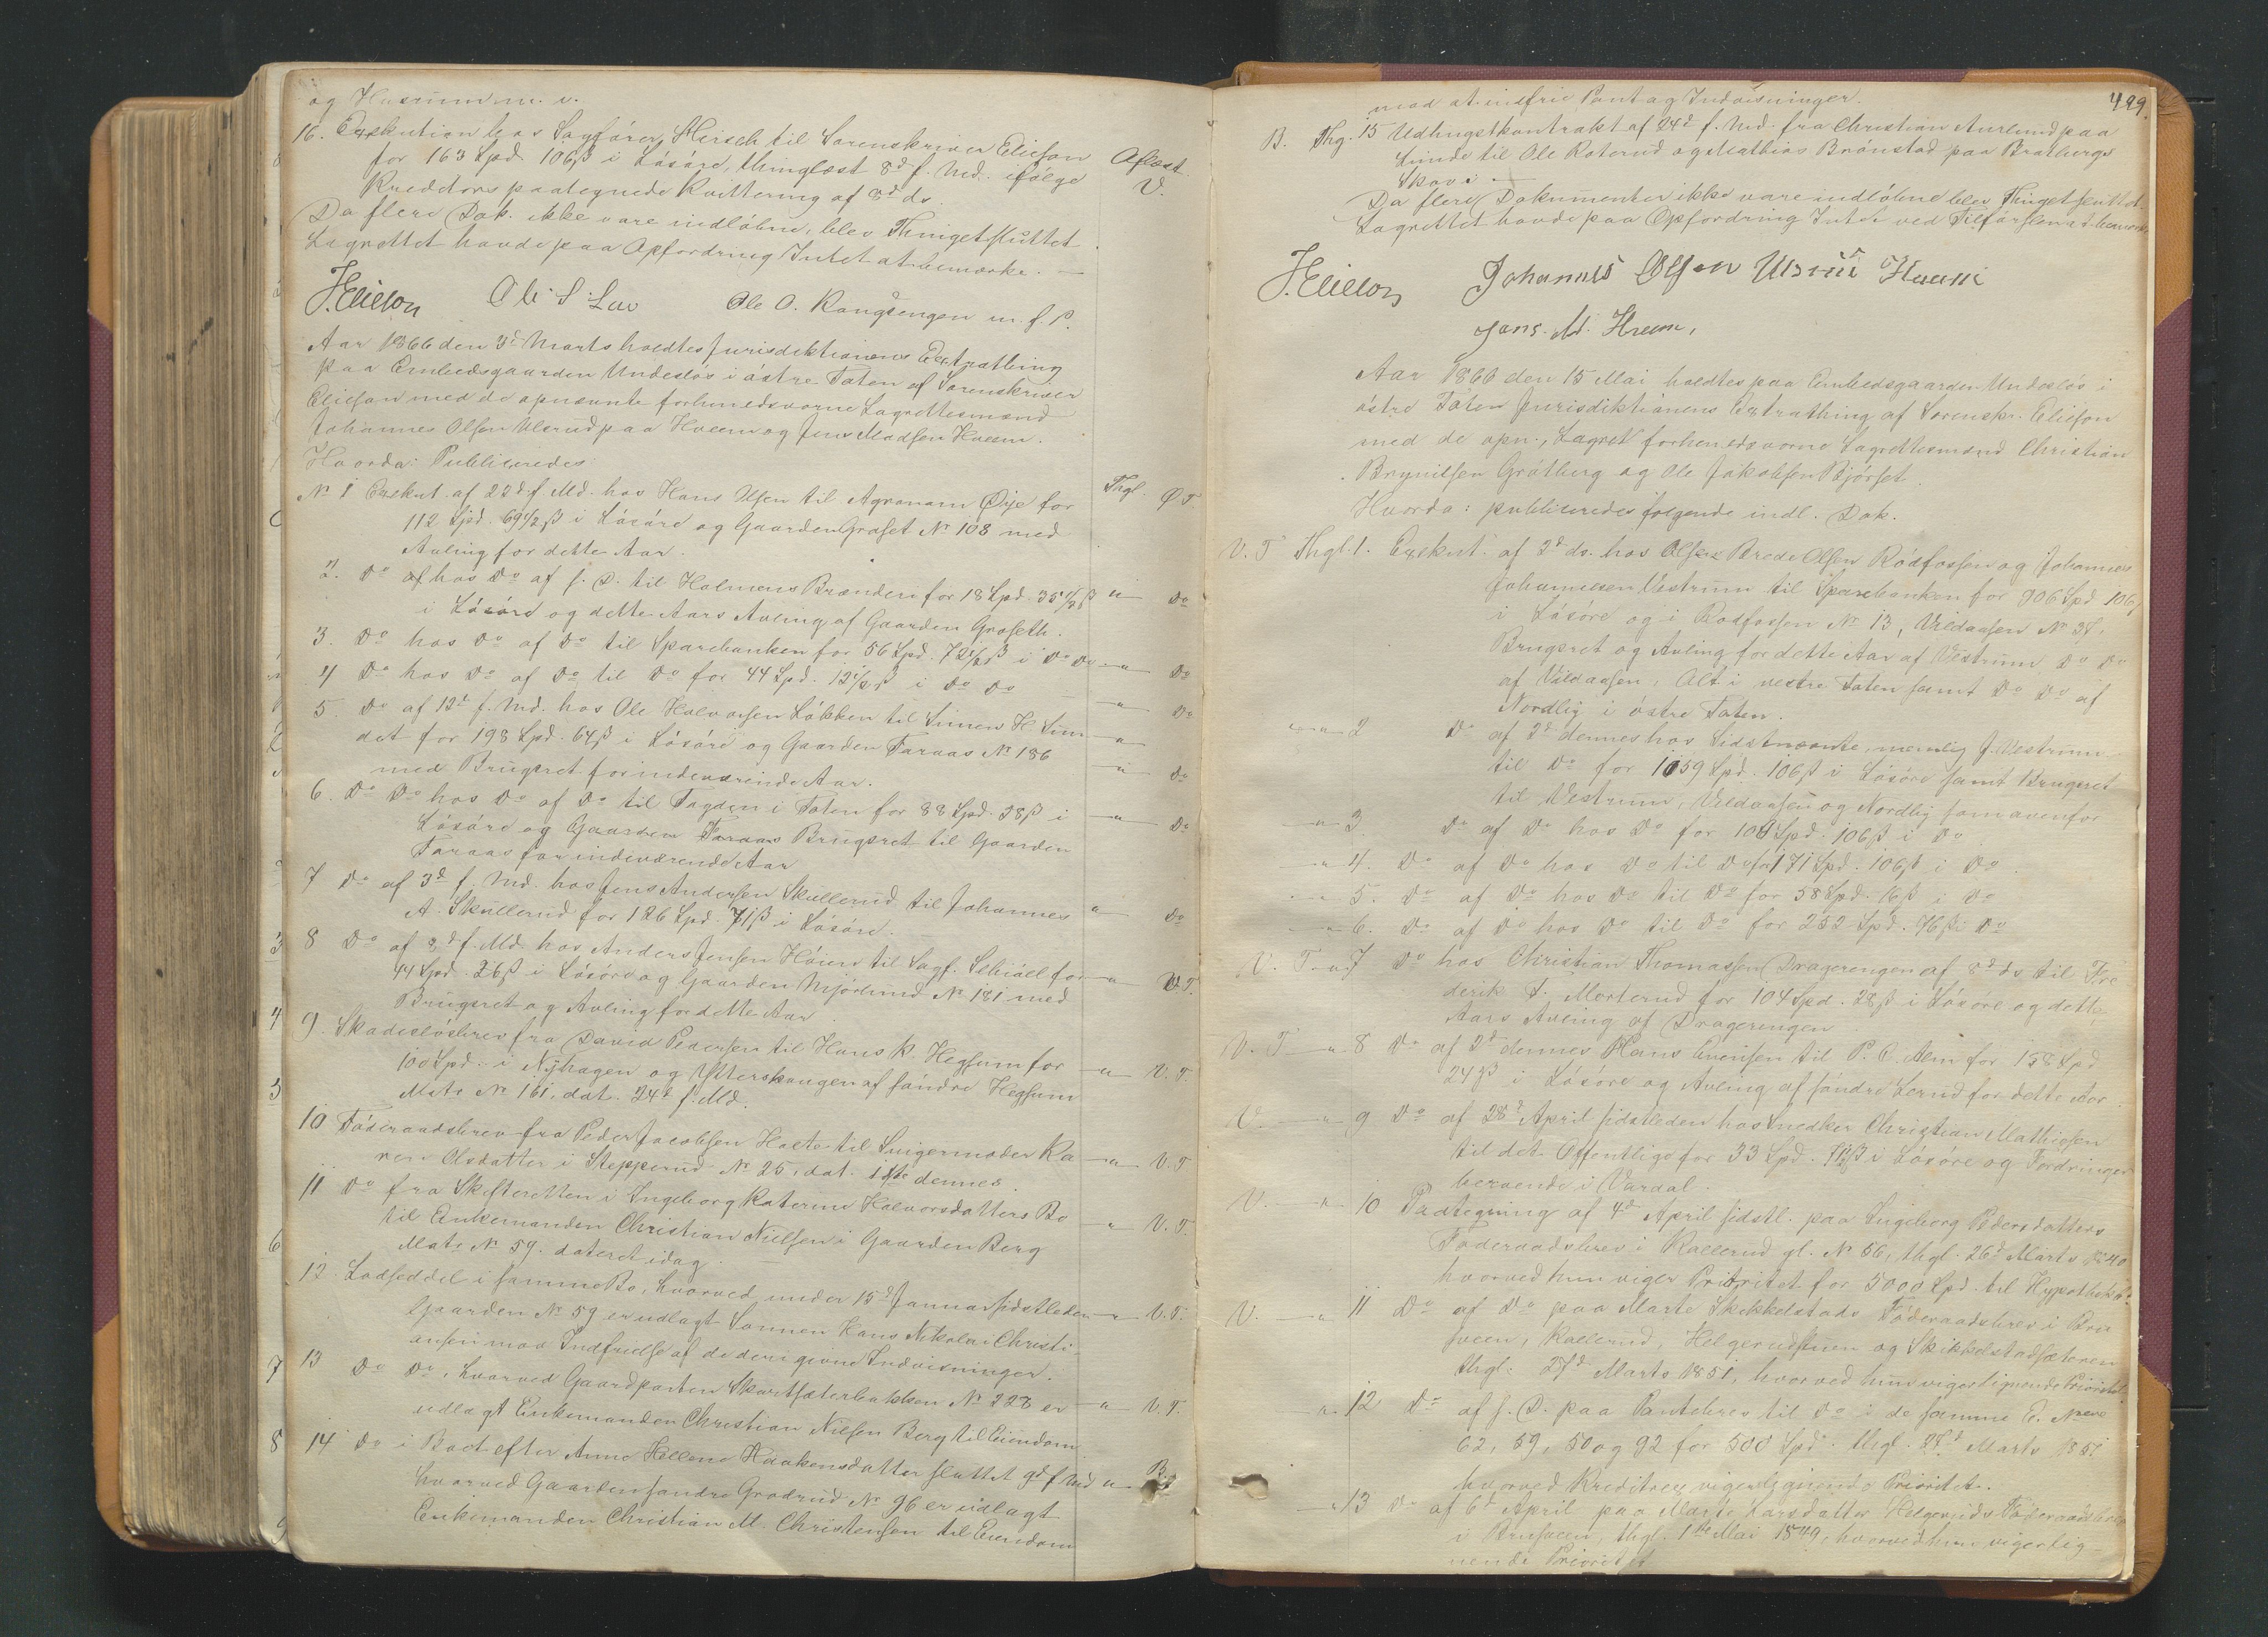 og Husrum m. v.
16. Exekution hos Sagfører Hirsch til Sorenskriver Elieson Aflæst
for 163 Spd. 106 ß i Løsøre, thinglæst 8d f. Md. ifølge V.
Kreditors paategnede Kvittering af 8d ds.
Da flere Dok. ikke vare indløbne, blev Thinget sluttet.
Lagrettet havde paa Opfordring Intet at bemærke. —
J. Elieson Ole S. Lav Ole O. Kongsengen m. f. P.
Aar 1866 den 3d Marts holdtes Jurisdiktionens Extrathing
paa Embedsgaarden Undeslös i östre Toten af Sorenskriver
Elieson med de opnævnte forhenedsvorne Lagrettesmænd
Johannes Olsen Ulsrud paa Hveem og Jens Madsen Hveem.
Hvorda: Publiceredes:
No 1 Exekut. af 22d f. Md. hos Hans Olsen til Agronom Øije for Thgl. Ø. T.
112 Spd. 69 1/2 ß i Løsøre og Gaarden Groset No 108 med
Avling for dette Aar.
2. Do af hos Do af s. D. til Holmens Brænderi for 18 Spd. 35 1/2 ß " Do
i Løsøre og dette Aars Avling af Gaarden Groseth.
3. Do hos Do af Do til Sparebanken for 56 Spd. 72 1/2 ß i Do Do — " — Do
4 Do hos Do af Do til Do for 44 Spd. 12 1/2 ß i Do Do — " — Do
5. Do af 12d f. Md. hos Ole Halvorsen Løkken til Simen H. Sun- — " —
det for 198 Spd. 64 ß i Løsøre og Gaarden Taraas No 186
med Brugsret for indeværende Aar. — " — Do
6. Do Do hos Do af Do til Fogden i Toten for 88 Spd. 28 ß i — " — Do
Løsøre og Gaarden Taraas Brugsret til Gaarden
Taraas for indeværende Aar
7 Do af 3d f. Md. hos Jens Andersen Skullerud til Johannes " — Do
A. Skullerud for 126 Spd. 71 ß i Løsøre. —
8 Do af 8d f. Md. hos Anders Jensen Höien til Sagf. Schiöll for — " — V. T.
44 Spd. 26 ß i Løsøre og Gaarden Mjörlund No 181 med
Brugsret og Avling for dette Aar
9. Skadeslösbrev fra David Pedersen til Hans P. Hegsum for
100 Spd. i Nyhagen og Ytterskougen af söndre Hegsum — " — V. T.
Mats No 161. dat. 24d f. Md.
10 Föderaadsbrev fra Peder Jacobsen Holte til Svigermoder Ka- — " — V. T
ren Olsdatter i Stepperud No 25. dat. 1ste dennes.
11 Do fra Skifteretten i Ingeborg Katerine Halvorsdatters Bo — " — V. T.
til Enkemanden Christian Nielsen i Gaarden Berg
Mats No 59. dateret idag. —
12. Lodseddel i samme Bo, hvorved under 15d Januar sidstleden — " — V. T.
Gaarden No 59 er udlagt Sønnen Hans Nikolai Christi-
ansen mod Indfrielse af de deri givne Indvisninger.
13 Do Do, hvorved Gaardparten Skartsæterbakken No 228 er — " — V. T.
udlagt Enkemanden Christian Nielsen Berg til Eiendom
14 Do i Boet efter Anne Hellene Haakensdatter sluttet 9d f. Md " — B.
hvorved Gaarden søndre Grodrud No 96 er udlagt
Enkemanden Christian M. Christensen til Eiendom
499.
mod at indfrie Pant og Indvisninger.
B. Thg. 15 Udhugstkontrakt af 24d f. Md. fra Christian Aurlund paa
Lunde til Ole Roterud og Mathias Brönstad paa Bratbergs
Skov i —
Da flere Dokumenter ikke vare indløbne blev Thinget sluttet.
Lagrettet havde paa Opfordring Intet ved Tilførslen at bemærke
J. Elieson Johannes Olsen Ulsrud Hveem
Jens. M. Hveem,
Aar 1866 den 15 Mai holdtes paa Embedsgaarden Undeslös i
östre Toten Jurisdiktionens Extrathing af Sorenskr. Elieson
med de opn., Lagret forhenedsvorne Lagrettesmænd Christian
Brynilsen Gråtberg og Ole Jakobsen Bjørset.
Hvorda: publiceredes følgende indl. Dok.
V. T Thgl. 1. Exekut. af 2d ds. hos Olsen Brede Olsen Rödfossen og Johannes
Johannesen Vestrum til Sparebanken for 906 Spd 106 ß
i Løsøre og i Rodfossen No 13, Vildaasen No 37,
Brugsret og Avling for dette Aar af Vestrum Do Do
af Vildaasen, Alt i vestre Toten samt Do Do af
Nordlig i östre Toten.
— " — 2 Do af 2d dennes hos Sidstnævnte, nemlig J. Vestrum
til Do for 1059 Spd. 106 ß i Løsøre samt Brugsret
til Vestrum, Vildaasen og Nordlig som ovenfor
— " 3. Do af Do hos Do for 108 Spd. 106 ß i Do
— " 4. Do af Do hos Do til Do for 171 Spd. 106 ß i Do
— " 5. Do af Do hos Do til Do for 58 Spd. 16 ß i Do
— " 6. Do af Do hos Do til Do for 252 Spd. 46 ß i Do
V. T. — " 7 Do hos Christian Thomassen Drageringen af 8d ds til Fre
derik J. Morterud for 104 Spd. 28 ß i Løsøre og dette
Aars Avling af Drageringen
V. T — " 8 Do af 2d dennes Hans Evensen til P. C. Alm for 158 Spd
24 ß i Løsøre og Avling af søndre Lerud for dette Aar
V. — " 9 Do af 28d April sidstleden hos Snedker Christian Mathiesen
til det Offentlige for 33 Spd. i Løsøre og Fordringer
beroende i Vardal.
V. — " — 10 Paategning af 4d April sidstl. paa Ingeborg Pedersdatters
Føderaadsbrev i Kallerud gl. No 56, thgl. 26d Marts 1840
hvorved hun viger Prioritet for 5000 Spd. til Hypothekb.
V. — " 11 Do af Do paa Marte Skikkelstads Føderaadsbrev i Bru
sveen, Kallerud, Helgerudstuen og Skikkelstadsæteren
thgl. 27d Marts 1851, hvorved hun viger lignende Prioritet
— " 12 Do af s. D. paa Pantebrev til Do i de samme E. No
62, 59, 50 og 92 for 500 Spd. thgl. 27d Marts 1851
hvorved Kreditrex viger lignende Prioritet.
— " 13 Do af 6d April paa Marte Larsdatter Helgeruds Føderaadsbrev
i Brusveen, thgl. 1ste Mai 1849, hvorved hun viger lig-
nende Prioritet